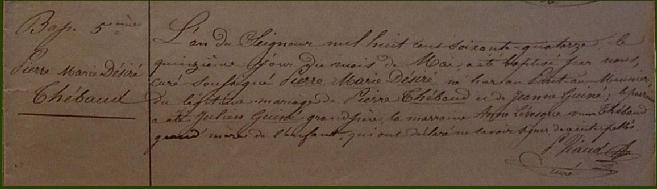 Bap. 5ième
Pierre Marie Désiré
Thébaud
L'an du Seigneur mil huit cent soixante-quatorze, le
quinzième jour du mois de Mai, a été baptisé par nous,
curé soussigné Pierre Marie Désiré, né hier au
du légitime mariage de Pierre Thébaud et de Jeanne Guiné; le parrain
a été Julien Guiné grand père, la marraine Anne veuve Thébaud
grand'mère de l'enfant, qui ont déclaré ne savoir signer de ce interpellés
curé